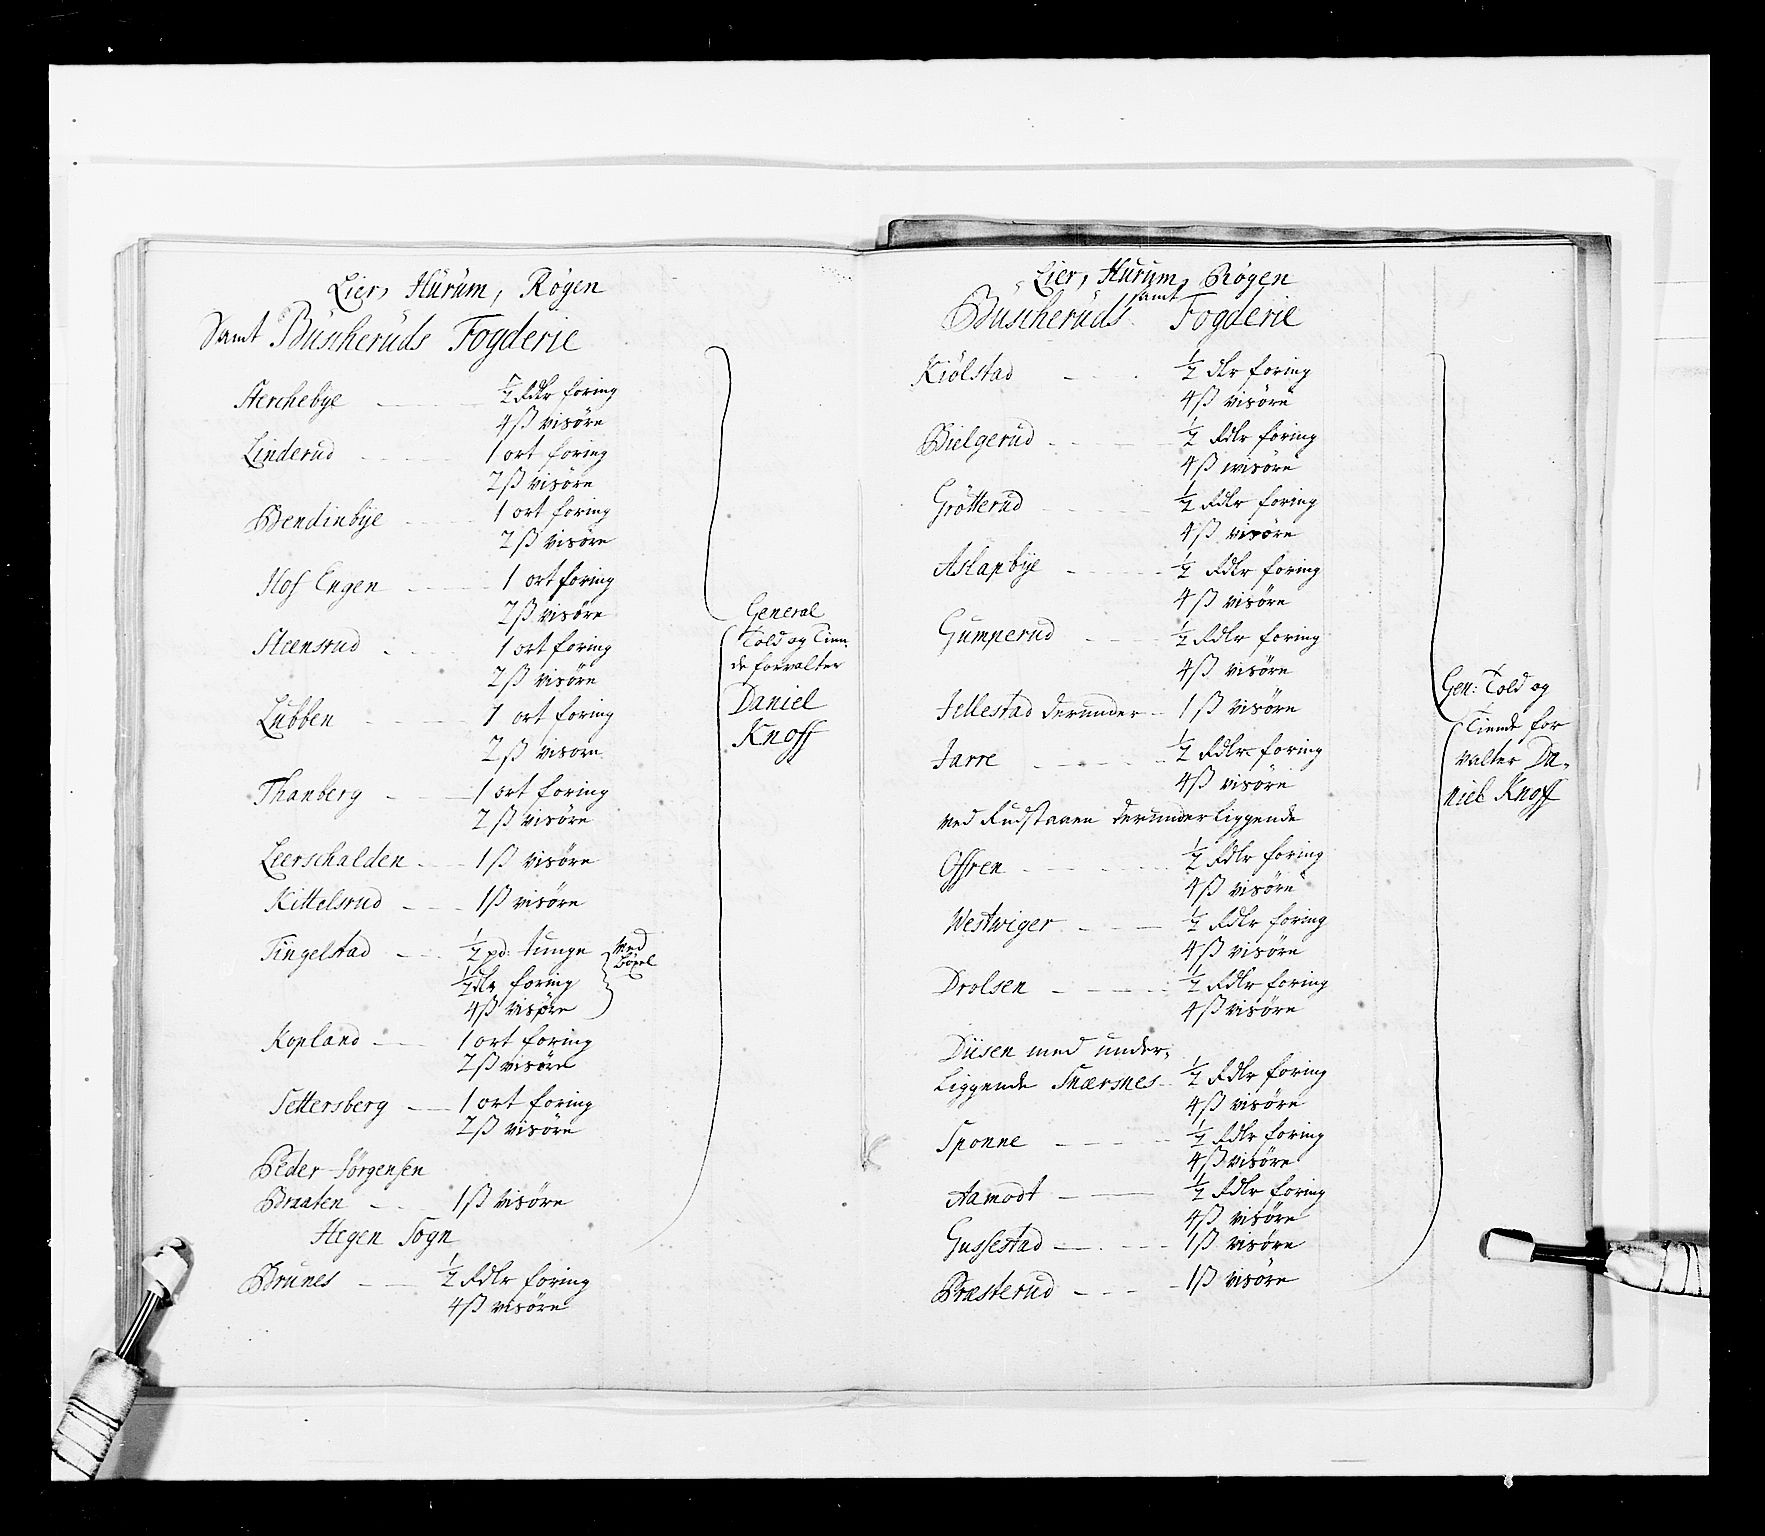 Lier, Hurum, Røgen
Samt Buscheruds Fogderie
Sterchebye ½ Rdlr foring
4 ß visöre
Linderud 1 ort foring
2 ß visöre
Bendinbye 1 ort foring
2 ß visöre
Hof Engen 1 ort foring
2 ß visöre
Steensrud 1 ort foring
2 ß visöre
Lubben 1 ort foring
2 ß visöre
Thanberg 1 ort foring
2 ß visöre
Leerschalden 1 ß visöre
Kittelsrud 1 ß visöre
Tingelstad ½ pd: tunge
½ dlr foring
4 ß visöre
Med
Bøxel
Kopland 1 ort foring
2 ß visöre
Settersberg 1 ort foring
2 ß visöre
Peder Jörgensen
Braaten 1 ß visöre
Hegen Sogn
Brunes ½ Rdlr foring
4 ß visöre
General
Told og Tien-
de forvalter
Daniel
Knoff
Lier, Hurum, Røgen
samt
Buscheruds Fogderie
Kiölstad ½ dlr foring
4 ß visöre
Bielgerud ½ Rdlr foring
4 ß wisöre
Grötterud ½ Rdlr foring
4 ß visöre
Aslapbye ½ Rdlr foring
4 ß visöre
Gumperud ½ Rdlr foring
4 ß visöre
Jellestad derunder 1 ß visöre
Jarre ½ Rdlr foring
4 ß visöre
med Rudstaaen derunder liggende
Offren ½ Rdlr foring
4 ß visöre
Westwiger ½ Rdlr foring
4 ß visöre
Drolsen ½ Rdlr foring
4 ß visöre
Diisen med under-
liggende Snærsnes ½ Rdlr foring
4 ß visöre
Sponne ½ Rdlr foring
4 ß visöre
Aamodt ½ Rdlr foring
4 ß visöre
Gussestad 1 ß visöre
Præsterud 1 ß visöre
Gen: Told og
Tiende for
valter Da-
niel Knoff